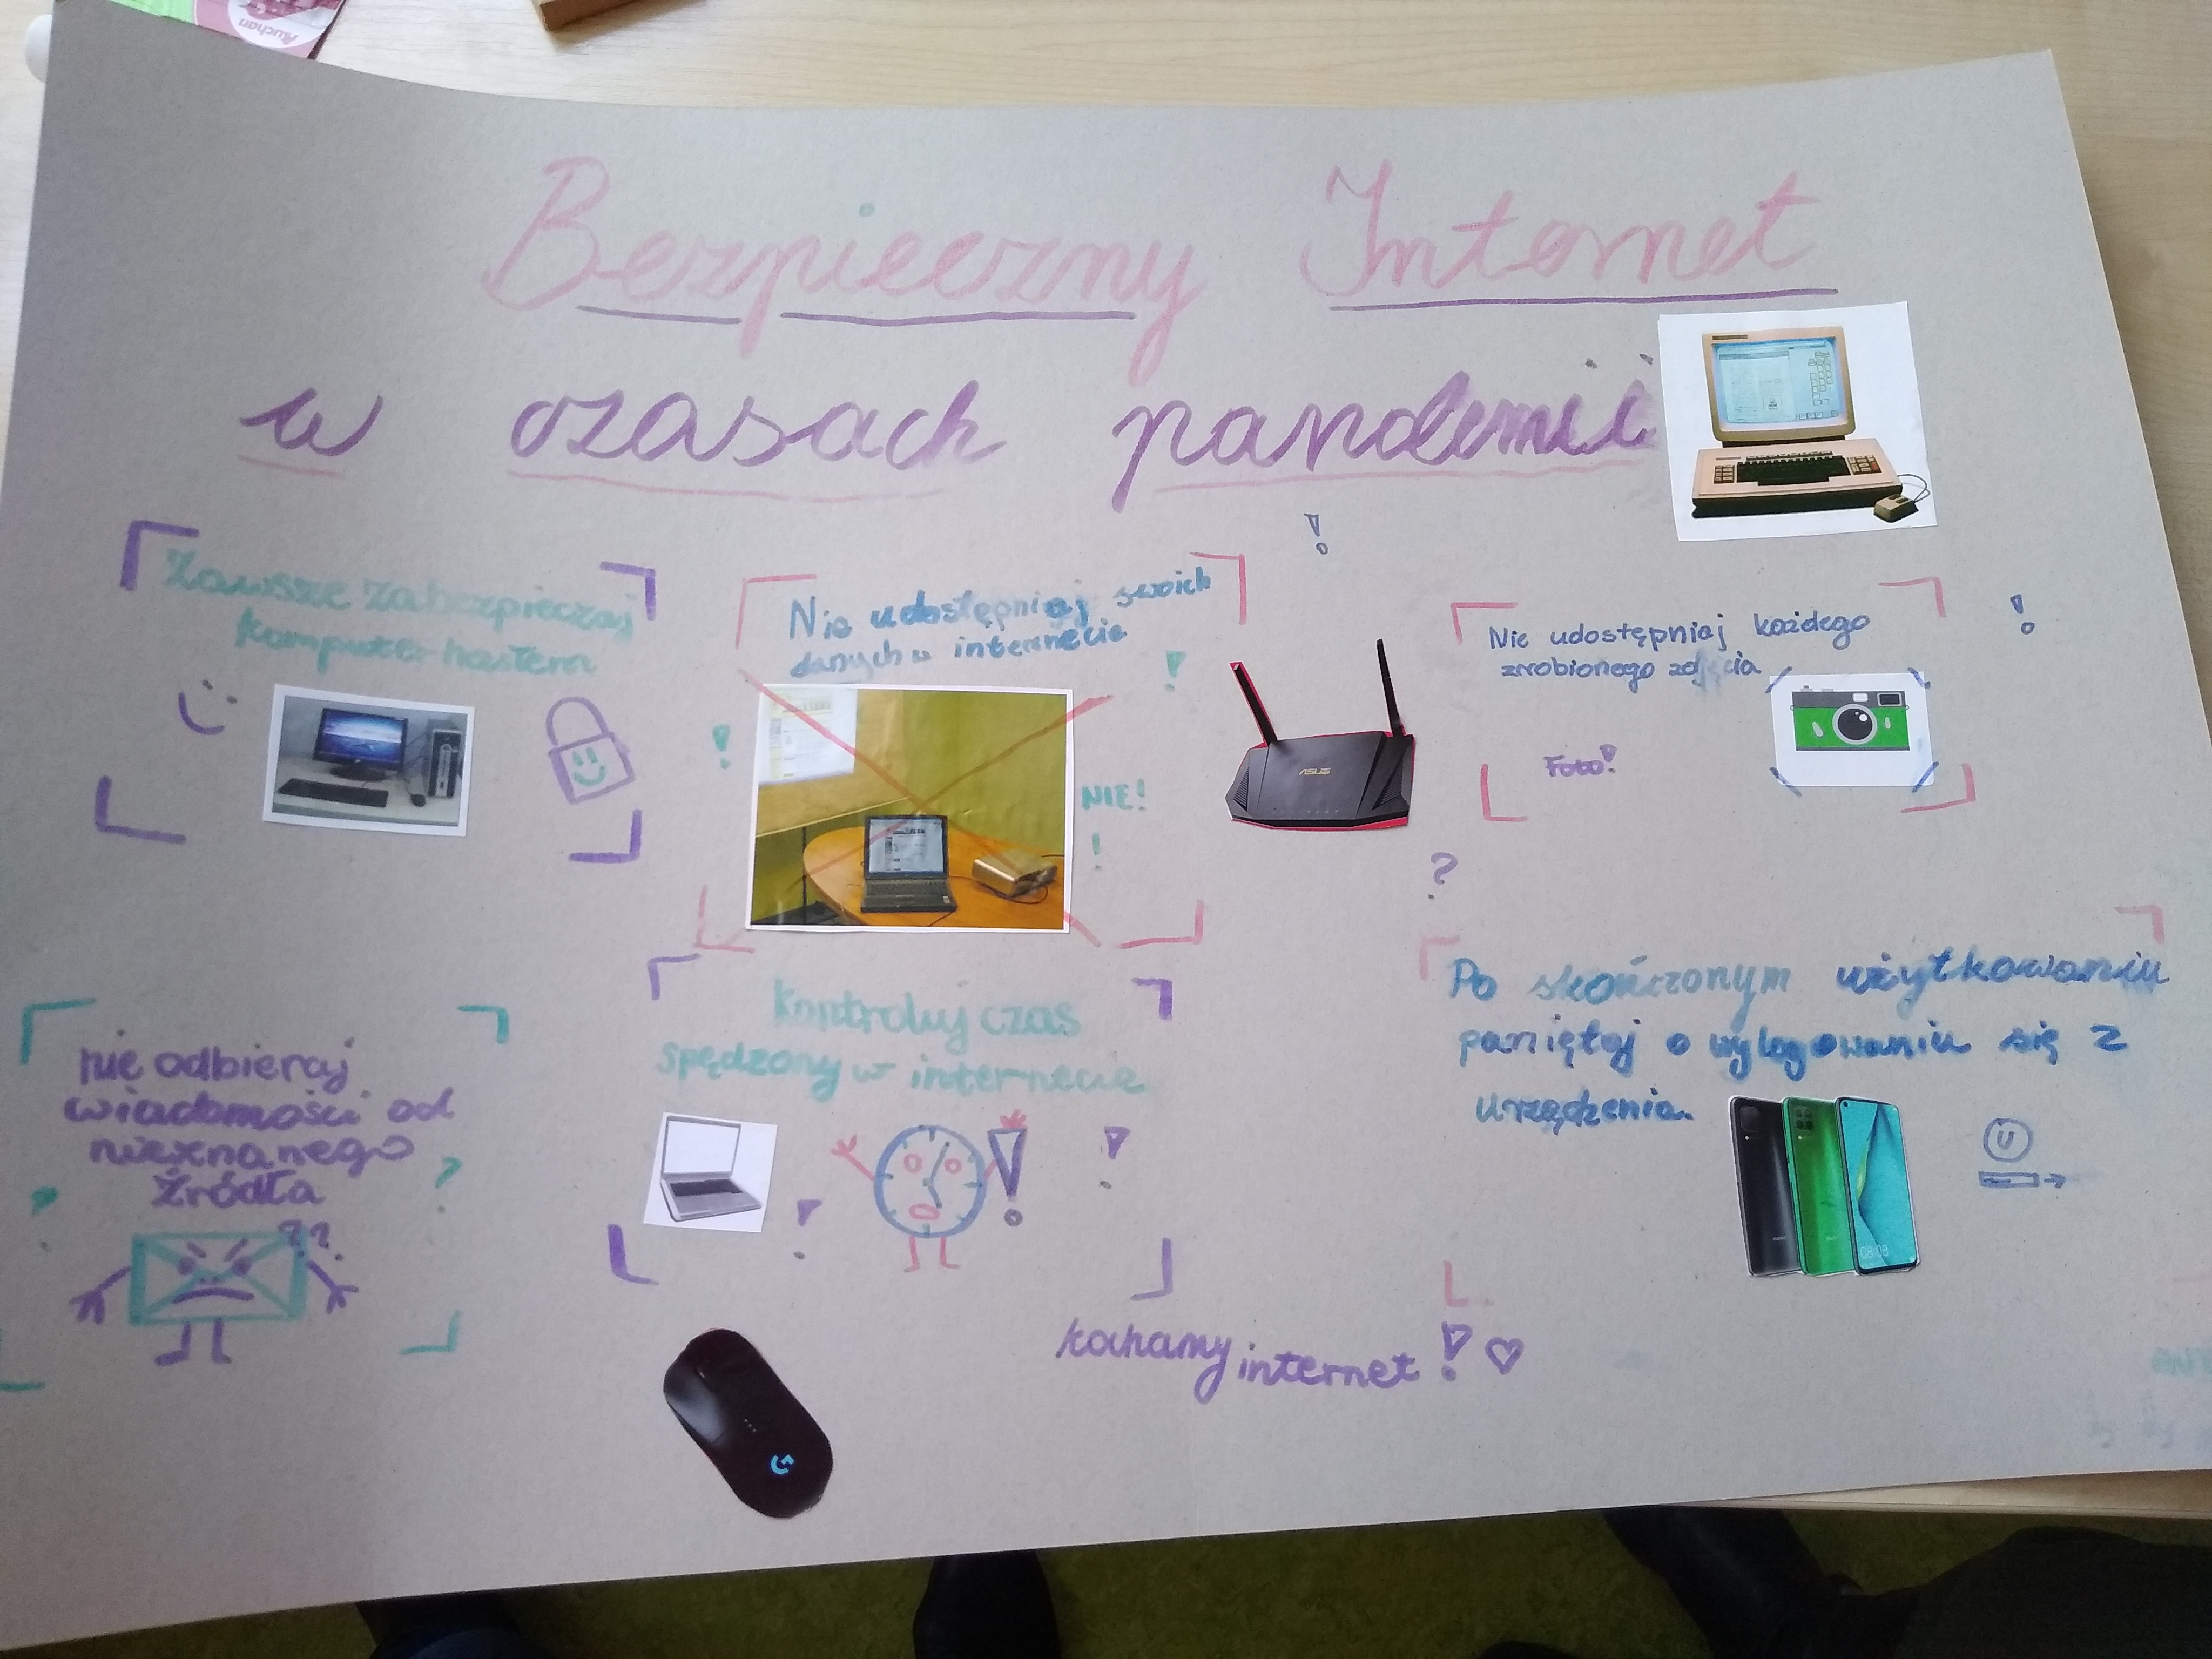 Auchan
Bezpieczny Internet
w czasach pandemii
Zawsze zabezpieczaj
komputer hasłem
Nie udostępniaj swoich
danych w internecie
NIE!
ASUS
Nie udostępniaj każdego
zrobionego zdjęcia
Foto!
nie odbieraj
wiadomości od
nieznanego
źródła
??
Kontroluj czas
spędzony w internecie
Po skończonym użytkowaniu
pamiętaj o wylogowaniu się z
urządzenia.
08:08
kochamy internet!